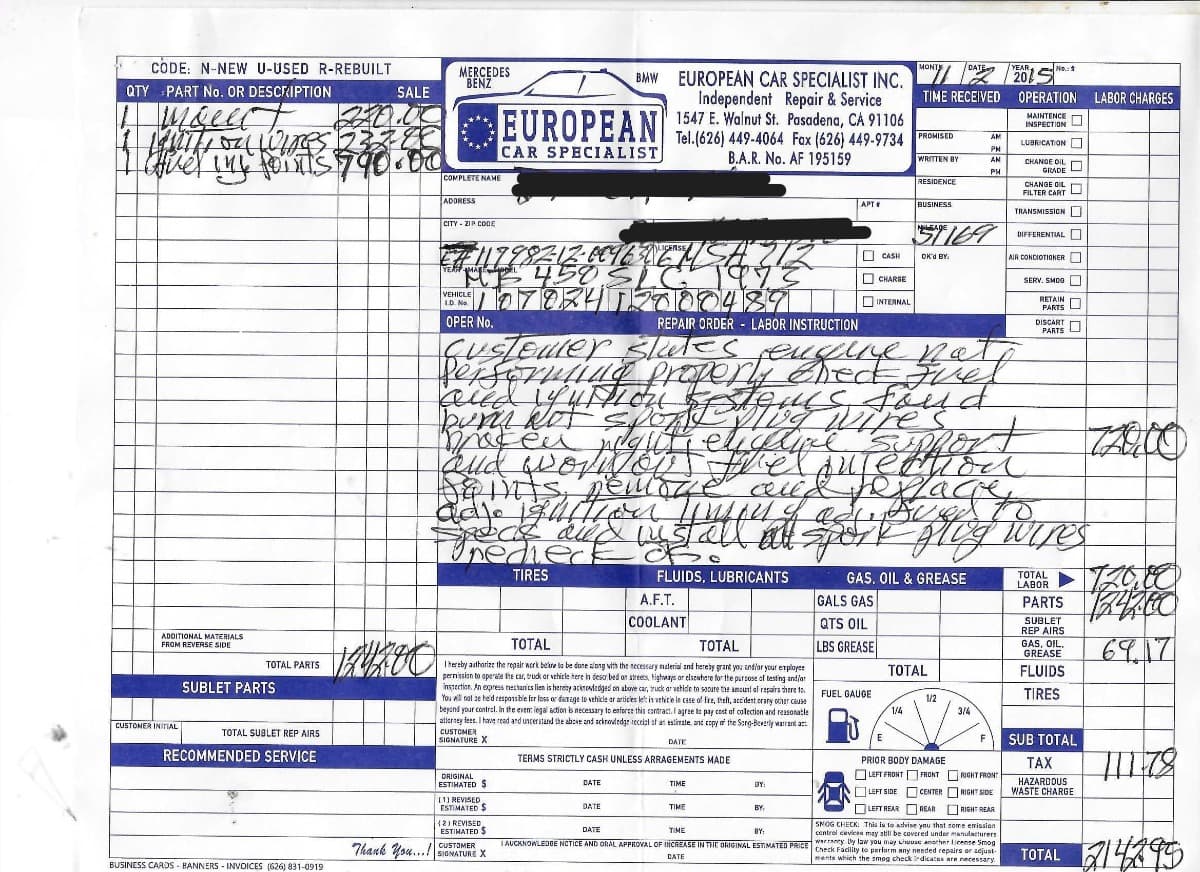 CODE: N-NEW U-USED R-REBUILT
QTY PART No. OR DESCRIPTION SALE
1 mount 220.00
1 ignition wires 232.00
1 fuel inj joints 790.00
ADDITIONAL MATERIALS
FROM REVERSE SIDE
TOTAL PARTS 1242.00
SUBLET PARTS
CUSTOMER INITIAL
TOTAL SUBLET REP AIRS
RECOMMENDED SERVICE
Thank You...!
BUSINESS CARDS - BANNERS - INVOICES (626) 831-0919
MERCEDES
BENZ
BMW
EUROPEAN
CAR SPECIALIST
EUROPEAN CAR SPECIALIST INC.
Independent Repair & Service
1547 E. Walnut St. Pasadena, CA 91106
Tel.(626) 449-4064 Fax (626) 449-9734
B.A.R. No. AF 195159
COMPLETE NAME
ADDRESS
APT #
CITY - ZIP CODE
LICENSE
YEAR - MAKE - MODEL
MB 450 SLC 1973
VEHICLE
I.D. No.
CASH
CHARGE
INTERNAL
MONTH 11 DATE 2 YEAR 2015 No.:
TIME RECEIVED OPERATION LABOR CHARGES
PROMISED AM
PM
WRITTEN BY AM
PM
RESIDENCE
BUSINESS
MILEAGE
51169
OK'd BY:
MAINTENCE
INSPECTION
LUBRICATION
CHANGE OIL
GRADE
CHANGE OIL
FILTER CART
TRANSMISSION
DIFFERENTIAL
AIR CONCIOTIONER
SERV. SMOG
RETAIN
PARTS
DISCART
PARTS
OPER No. REPAIR ORDER - LABOR INSTRUCTION
Customer states engine not
performing properly check fuel
and ignition systems found
burn out spork plug wires
broken right engine support 720.00
and worn out fuel injection
joints, remove and replace,
adj. ignition timing adj. fuel to
specs and install all spork plug wires
recheck ok.
TIRES
TOTAL
FLUIDS, LUBRICANTS
A.F.T.
COOLANT
TOTAL
GAS, OIL & GREASE
GALS GAS
QTS OIL
LBS GREASE
TOTAL
TOTAL
LABOR 720.00
PARTS 1242.00
SUBLET
REP AIRS
GAS, OIL.
GREASE 69.17
FLUIDS
TIRES
SUB TOTAL
TAX 111.78
HAZARDOUS
WASTE CHARGE
TOTAL 2142.95
I hereby authorize the repair work below to be done along with the necessary material and hereby grant you and/or your employee
permission to operate the car, truck or vehicle here in described on streets, highways or elsewhere for the purpose of testing and/or
inspection. An express mechanics lien is hereby acknowledged on above car, truck or vehicle to secure the amount of repairs there to.
You will not be held responsible for loss or damage to vehicle or articles left in vehicle in case of fire, theft, accident or any other cause
beyond your control. In the event legal action is necessary to enforce this contract. I agree to pay cost of collection and reasonable
attorney fees. I have read and understand the above and acknowledge receipt of an estimate, and copy of the Song-Beverly warrant act.
CUSTOMER
SIGNATURE X DATE
TERMS STRICTLY CASH UNLESS ARRAGEMENTS MADE
ORIGINAL
ESTIMATED $ DATE TIME BY:
(1) REVISED
ESTIMATED $ DATE TIME BY:
(2) REVISED
ESTIMATED $ DATE TIME BY:
CUSTOMER
SIGNATURE X
I AUCKNOWLEDGE NOTICE AND ORAL APPROVAL OF INCREASE IN THE ORIGINAL ESTIMATED PRICE
DATE
FUEL GAUGE
E 1/4 1/2 3/4 F
PRIOR BODY DAMAGE
LEFT FRONT FRONT RIGHT FRONT
LEFT SIDE CENTER RIGHT SIDE
LEFT REAR REAR RIGHT REAR
SMOG CHECK: This is to advise you that some emission
control devices may still be covered under manufacturers
warranty. By law you may choose another License Smog
Check Facility to perform any needed repairs or adjust-
ments which the smog check indicates are necessary.